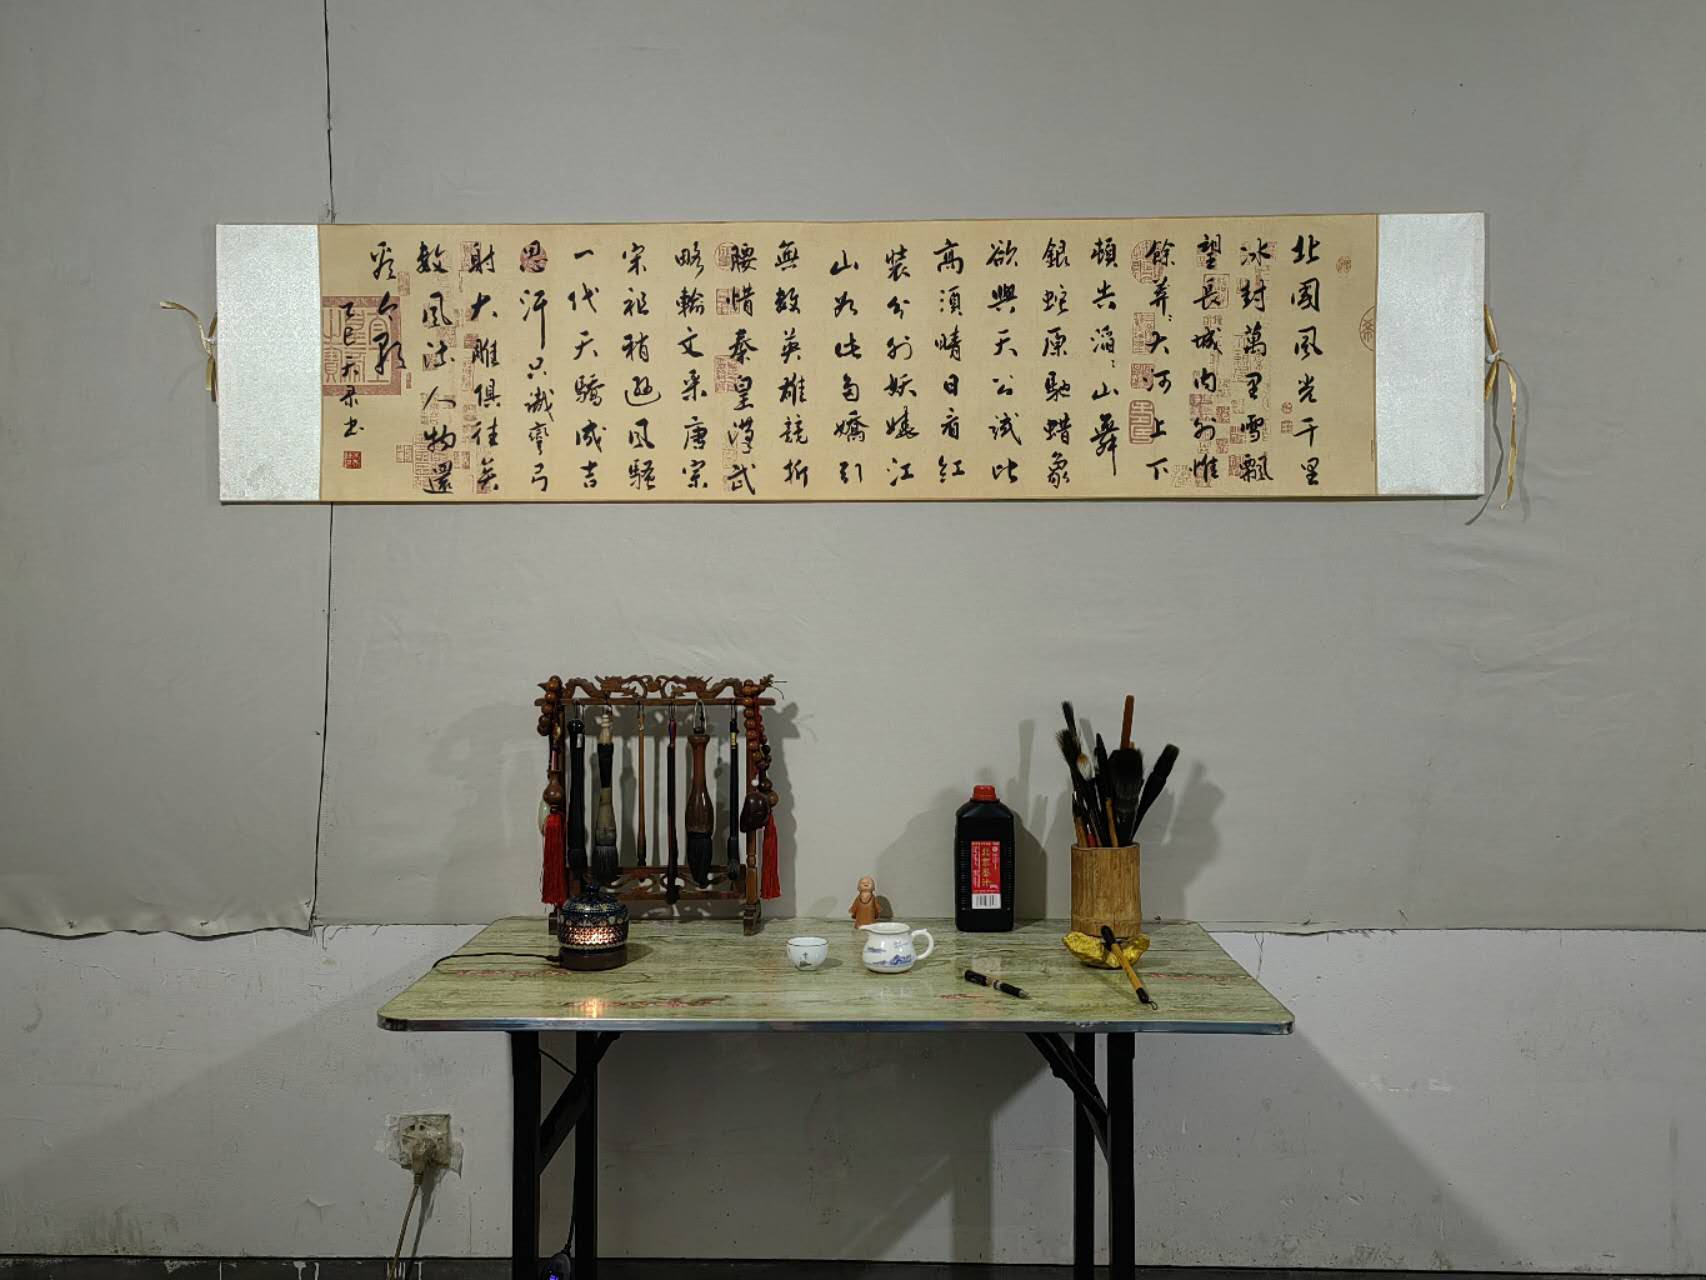 北國風光千里
冰封萬里雪飄
望長城內外惟
餘莽〻大河上下
頓失滔〻山舞
銀蛇原馳蜡象
欲與天公試比
高須晴日看紅
裝分外妖嬈江
山如此多嬌引
無數英雄競折
腰惜秦皇漢武
略輸文采唐宗
宋祖稍遜風騷
一代天驕成吉
思汗只識彎弓
射大雕俱往矣
數風流人物還
看今朝
乙巳天末书
北京墨汁